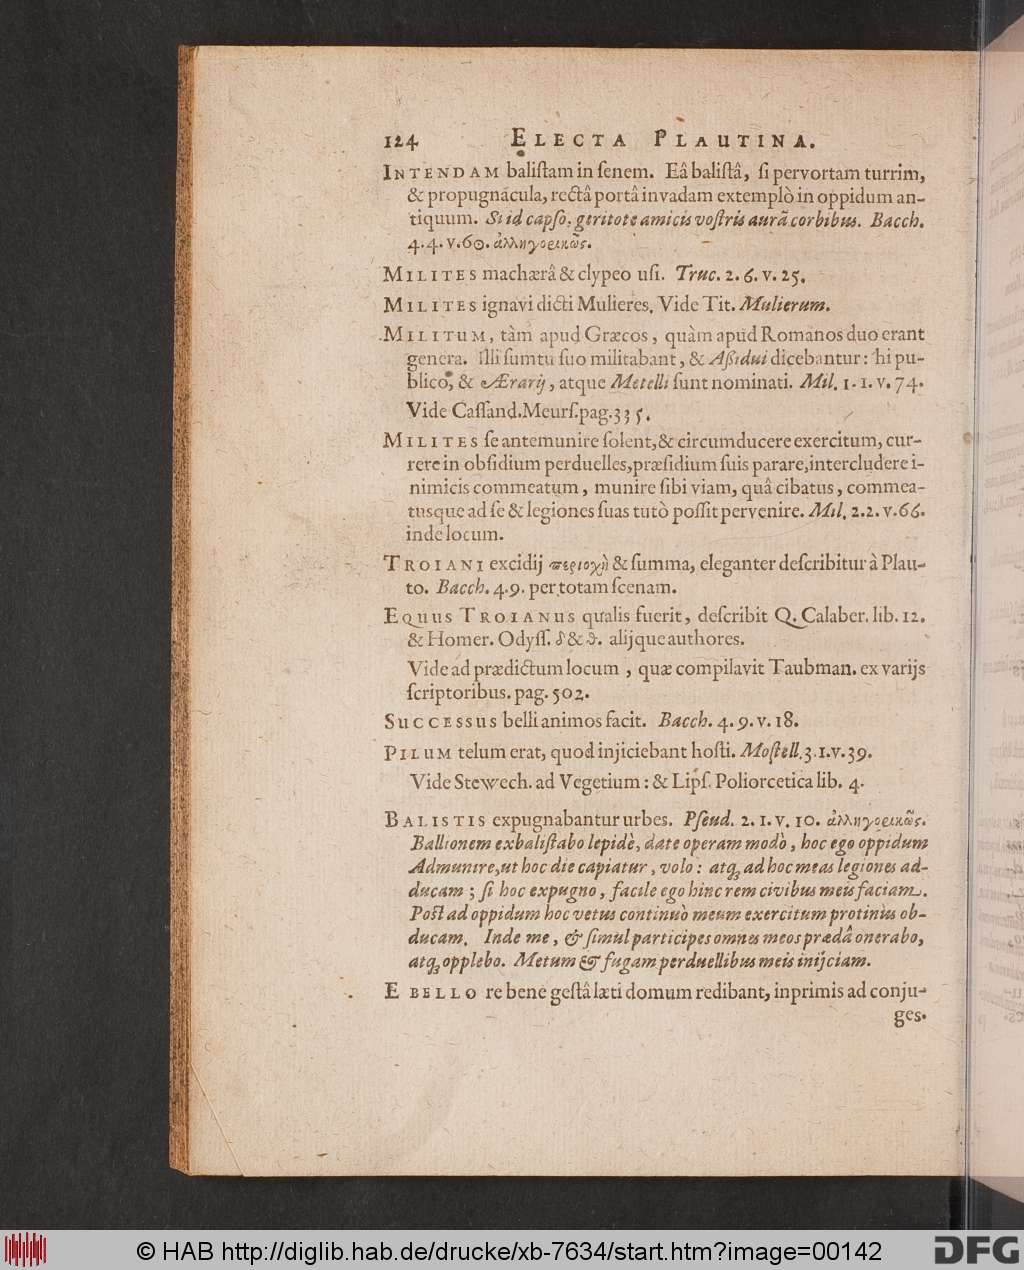 124 ELECTA PLAUTINA.
INTENDAM baliſtam in ſenem. Eâ baliſtâ, ſi pervortam turrim,
& propugnácula, rectâ portâ invadam extemplò in oppidum an-
tiquum. Si id capſo, geritote amicis voſtris aurũ corbibus. Bacch.
4. 4. v. 60. ἀλληγορικῶς.
MILITES machærâ & clypeo uſi. Truc. 2. 6. v. 25.
MILITES ignavi dicti Mulieres. Vide Tit. Mulierum.
MILITUM, tàm apud Græcos, quàm apud Romanos duo erant
genera. Illi ſumtu ſuo militabant, & Aßidui dicebantur: hi pu-
blico, & Ærarij, atque Metelli ſunt nominati. Mil. 1. 1. v. 74.
Vide Caſſand. Meurſ. pag. 335.
MILITES ſe antemunire ſolent, & circumducere exercitum, cur-
rere in obſidium perduelles, præſidium ſuis parare, intercludere i-
nimicis commeatum, munire ſibi viam, quâ cibatus, commea-
tusque ad ſe & legiones ſuas tutò poſſit pervenire. Mil. 2. 2. v. 66.
inde locum.
TROIANI excidij περιοχὴ & ſumma, eleganter deſcribitur à Plau-
to. Bacch. 4. 9. per totam ſcenam.
EQUUS TROIANUS qualis fuerit, deſcribit Q. Calaber. lib. 12.
& Homer. Odyſſ. δ & θ. alijque authores.
Vide ad prædictum locum, quæ compilavit Taubman. ex varijs
ſcriptoribus. pag. 502.
SUCCESSUS belli animos facit. Bacch. 4. 9. v. 18.
PILUM telum erat, quod injiciebant hoſti. Moſtell. 3. 1. v. 39.
Vide Stewech. ad Vegetium: & Lipſ. Poliorcetica lib. 4.
BALISTIS expugnabantur urbes. Pſeud. 2. 1. v. 10. ἀλληγορικῶς.
Ballionem exbaliſtabo lepidè, date operam modò, hoc ego oppidum
Admunire, ut hoc die capiatur, volo: atq; ad hoc meas legiones ad-
ducam; ſi hoc expugno, facile ego hinc rem civibus meis faciam.
Poſt ad oppidum hoc vetus continuò meum exercitum protinùs ob-
ducam. Inde me, & ſimul participes omnes meos prædâ onerabo,
atq; opplebo. Metum & fugam perduellibus meis inijciam.
E BELLO re bene geſtâ læti domum redibant, inprimis ad conju-
ges.
© HAB http://diglib.hab.de/drucke/xb-7634/start.htm?image=00142
DFG